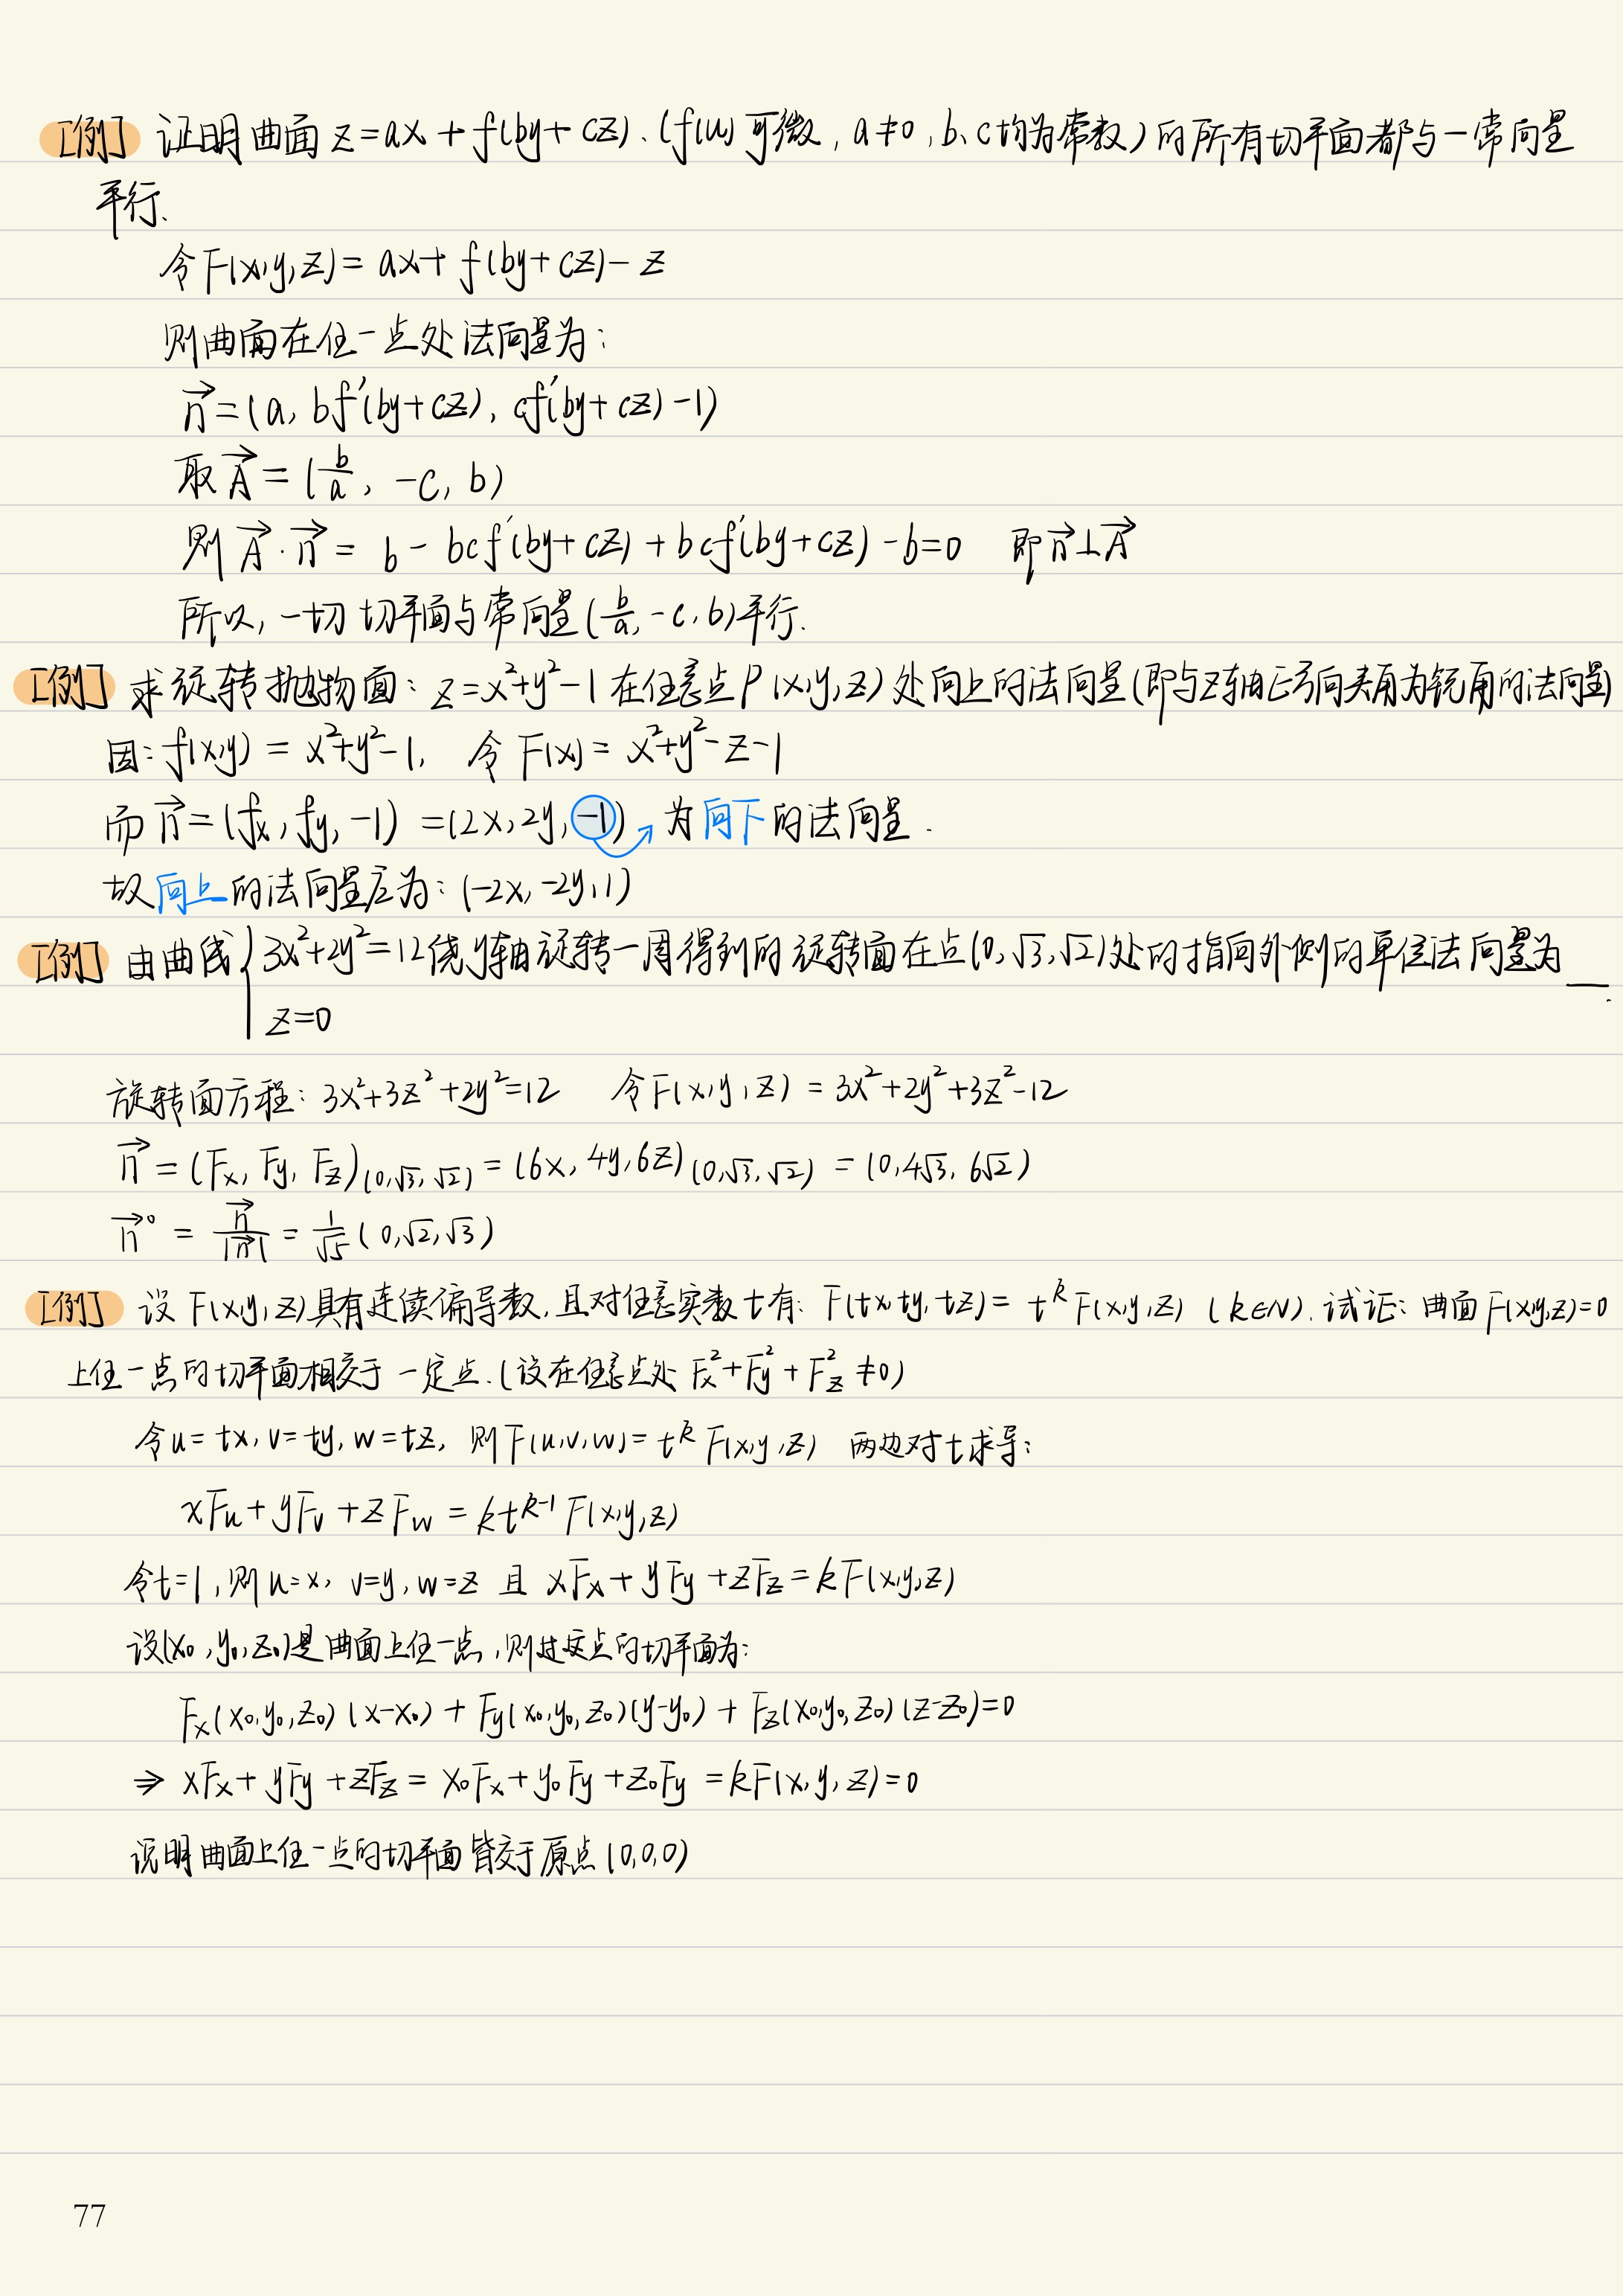 [例] 证明曲面 z=ax+f(by+cz). (f(u)可微, a≠0, b、c均为常数)的所有切平面都与一常向量
平行.
令F(x,y,z)=ax+f(by+cz)-z
则曲面在任一点处法向量为:
n⃗=(a, bf'(by+cz), cf'(by+cz)-1)
取A⃗=(b/a, -c, b)
则A⃗·n⃗= b-bcf'(by+cz)+bcf'(by+cz)-b=0 即n⃗⊥A⃗
所以, 一切切平面与常向量(b/a, -c, b)平行.
[例] 求旋转抛物面: z=x²+y²-1在任意点P(x,y,z)处向上的法向量(即与z轴正方向夹角为锐角的法向量)
因: f(x,y)=x²+y²-1, 令F(x)=x²+y²-z-1
而n⃗=(fx, fy, -1)=(2x, 2y, -1) 为向下的法向量.
故向上的法向量应为: (-2x, -2y, 1)
[例] 由曲线{3x²+2y²=12绕y轴旋转一周得到的旋转面在点(0,√3,√2)处的指向外侧的单位法向量为___.
z=0
旋转面方程: 3x²+3z²+2y²=12 令F(x,y,z)=3x²+2y²+3z²-12
n⃗=(Fx, Fy, Fz)(0,√3,√2)=(6x, 4y, 6z)(0,√3,√2)=(0, 4√3, 6√2)
n⃗°=n⃗/|n⃗|=1/√5(0,√2,√3)
[例] 设F(x,y,z)具有连续偏导数, 且对任意实数t有: F(tx,ty,tz)=t^k F(x,y,z) (k∈N). 试证: 曲面F(x,y,z)=0
上任一点的切平面相交于一定点. (设在任意点处 Fx²+Fy²+Fz²≠0)
令u=tx, v=ty, w=tz, 则F(u,v,w)=t^k F(x,y,z) 两边对t求导:
xFu+yFv+zFw=kt^(k-1) F(x,y,z)
令t=1, 则u=x, v=y, w=z 且 xFx+yFy+zFz=kF(x,y,z)
设(x₀,y₀,z₀)是曲面上任一点, 则过该点的切平面为:
Fx(x₀,y₀,z₀)(x-x₀)+Fy(x₀,y₀,z₀)(y-y₀)+Fz(x₀,y₀,z₀)(z-z₀)=0
⇒ xFx+yFy+zFz=x₀Fx+y₀Fy+z₀Fy=kF(x,y,z)=0
说明曲面上任一点的切平面皆交于原点(0,0,0)
77